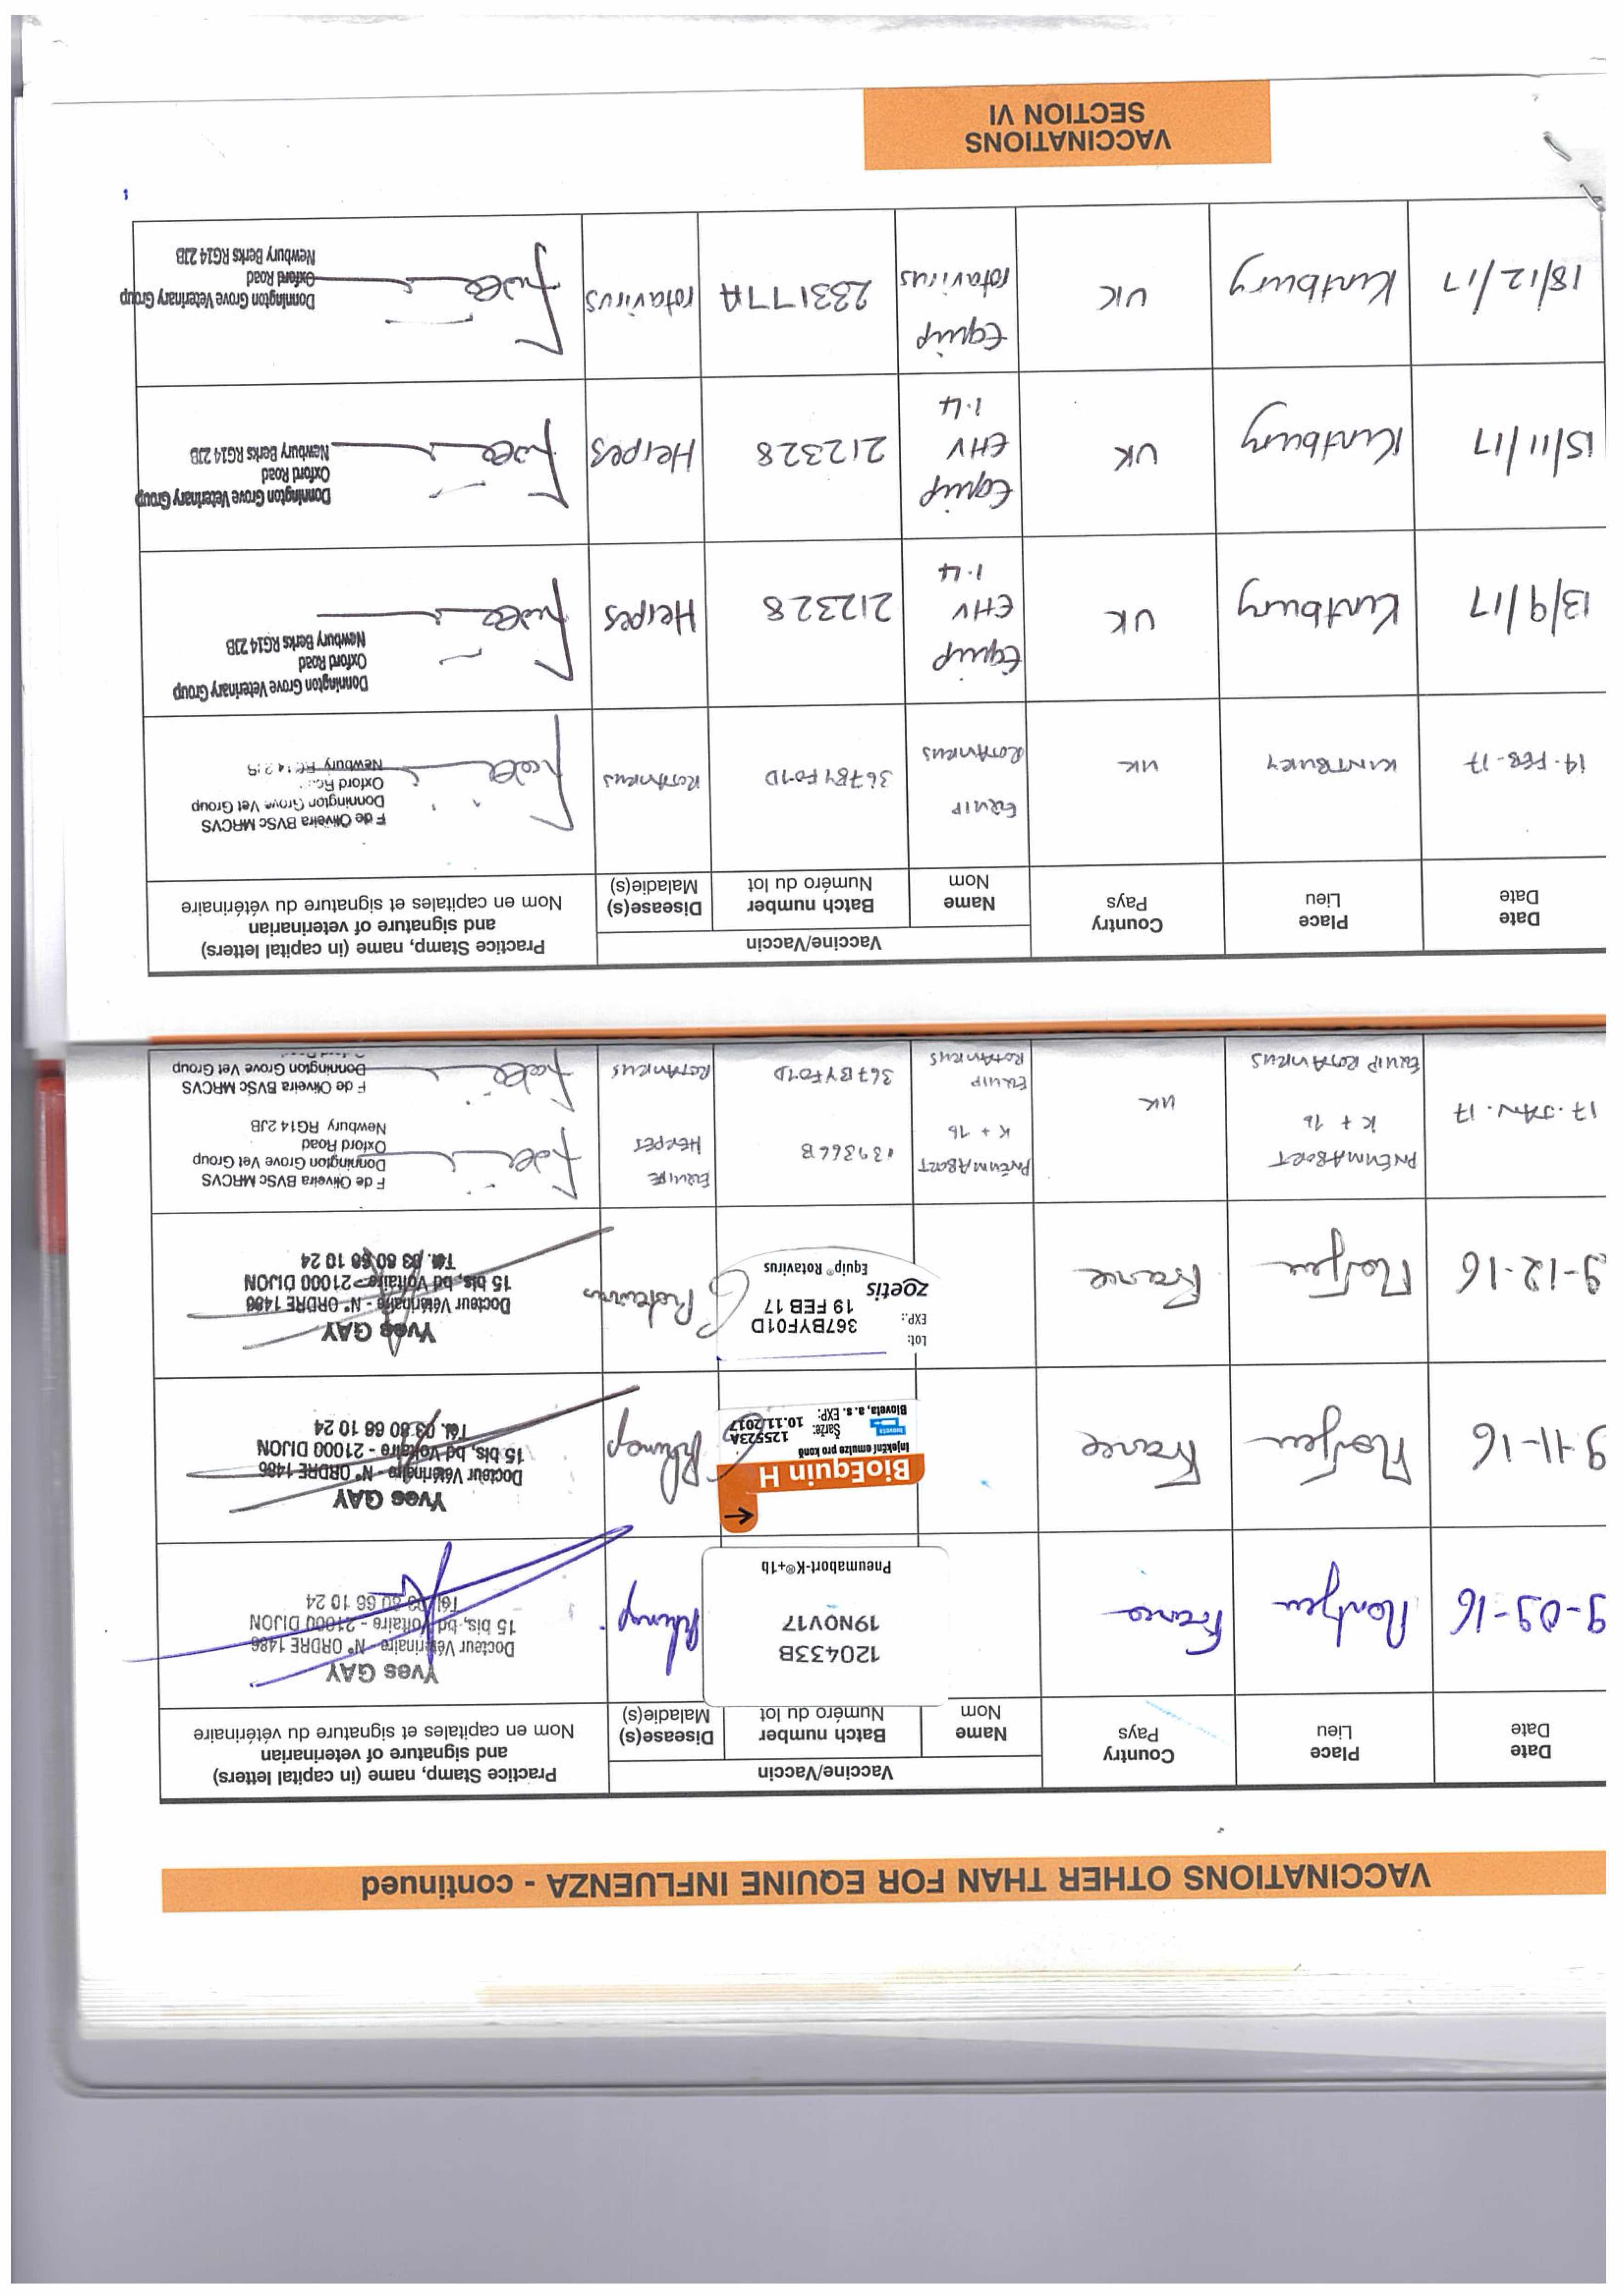 VACCINATIONS OTHER THAN FOR EQUINE INFLUENZA - continued
Date
Date
Place
Lieu
Country
Pays
Vaccine/Vaccin
Name
Nom
Batch number
Numéro du lot
Disease(s)
Maladie(s)
Practice Stamp, name (in capital letters)
and signature of veterinarian
Nom en capitales et signature du vétérinaire
9-09-16
France
120433B
19NOV17
Pneumabort-K®+1b
Rhinop
Yves GAY
Docteur Vétérinaire - N° ORDRE 1486
15 bis, bd Voltaire - 21000 DIJON
Tél. 03 80 66 10 24
9-11-16
France
BioEquin H
Injekční emulze pro koně
Šarže: 125523A
Bioveta, a. s. EXP: 10.11.2017
Rhinop
Yves GAY
Docteur Vétérinaire - N° ORDRE 1486
15 bis, bd Voltaire - 21000 DIJON
Tél. 03 80 66 10 24
9-12-16
France
Lot: 367BYF01D
EXP.: 19 FEB 17
zoetis
Equip® Rotavirus
Yves GAY
Docteur Vétérinaire - N° ORDRE 1486
15 bis, bd Voltaire - 21000 DIJON
Tél. 03 80 66 10 24
17.JAN.17
PNEUMABORT
K + 1b
EQUIP ROTAVIRUS
UK
PNEUMABORT
K + 1b
EQUIP
ROTAVIRUS
139366B
367BYF01D
EQUINE
HERPES
ROTAVIRUS
F de Oliveira BVSc MRCVS
Donnington Grove Vet Group
Oxford Road
Newbury RG14 2JB
F de Oliveira BVSc MRCVS
Donnington Grove Vet Group
Date
Date
Place
Lieu
Country
Pays
Vaccine/Vaccin
Name
Nom
Batch number
Numéro du lot
Disease(s)
Maladie(s)
Practice Stamp, name (in capital letters)
and signature of veterinarian
Nom en capitales et signature du vétérinaire
14.FEB.17
KINTBURY
UK
EQUIP
ROTAVIRUS
367BYF01D
ROTAVIRUS
F de Oliveira BVSc MRCVS
Donnington Grove Vet Group
Oxford Road
Newbury RG14 2JB
13/9/17
Kintbury
UK
Equip
EHV
1.4
212328
Herpes
Donnington Grove Veterinary Group
Oxford Road
Newbury Berks RG14 2JB
15/11/17
Kintbury
UK
Equip
EHV
1.4
212328
Herpes
Donnington Grove Veterinary Group
Oxford Road
Newbury Berks RG14 2JB
18/12/17
Kintbury
UK
Equip
rotavirus
233177A
rotavirus
Donnington Grove Veterinary Group
Oxford Road
Newbury Berks RG14 2JB
VACCINATIONS
SECTION VI